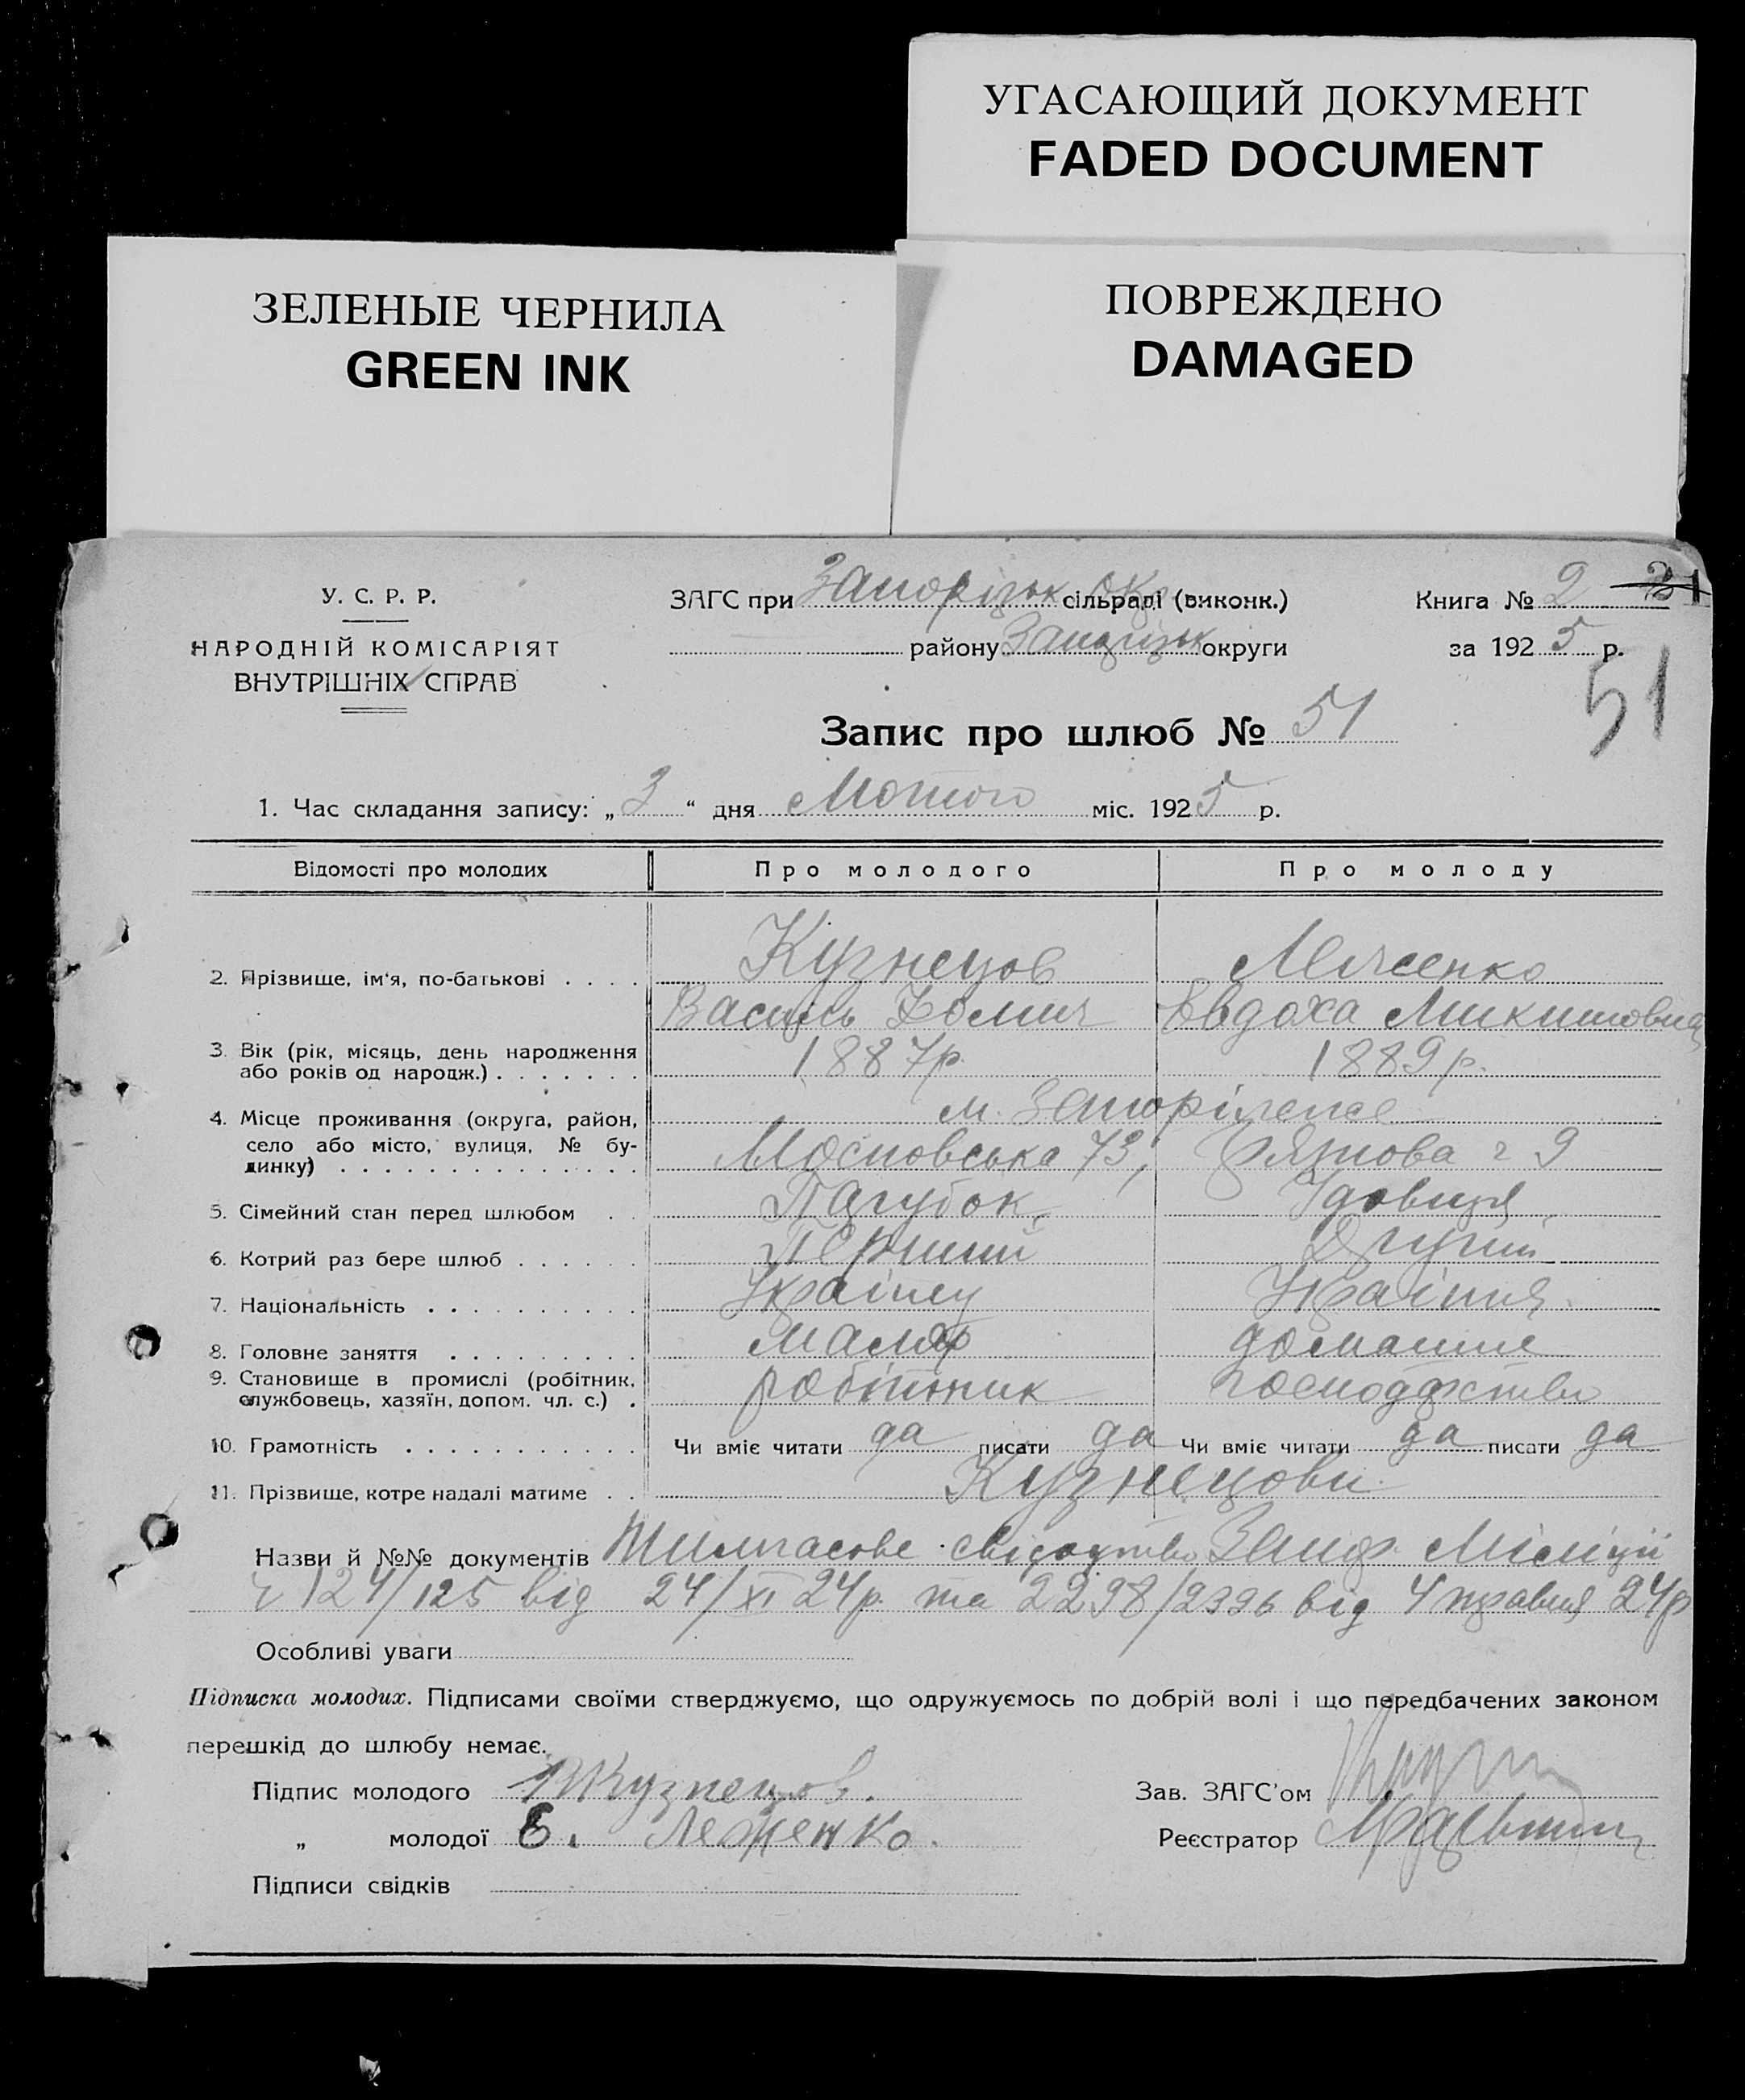 УГАСАЮЩИЙ ДОКУМЕНТ
FADED DOCUMENT
ЗЕЛЕНЫЕ ЧЕРНИЛА
GREEN INK
ПОВРЕЖДЕНО
DAMAGED
У. С. Р. Р.
НАРОДНІЙ КОМІСАРІЯТ
ВНУТРІШНІХ СПРАВ
ЗАГС при Запорізьк окр. сільраді (виконк.)
району Запорізьк округи
Книга № 2
за 1925 р.
51
Запис про шлюб № 51
1. Час складання запису: „3“ дня Лютого міс. 1925 р.
Відомості про молодих Про молодого Про молоду
2. Прізвище, ім'я, по-батькові . . . . Кузнецов
Василь Фомич Євдоха Микитовна
3. Вік (рік, місяць, день народження
або років од народж.) . . . . . . . 1887р. 1889р.
4. Місце проживання (округа, район,
село або місто, вулиця, № бу-
динку) . . . . . . . . . . . . . .
м. Запоріжже
Московська 73, 9
5. Сімейний стан перед шлюбом . . Парубок, Удовиця,
6. Котрий раз бере шлюб . . . . . . Перший Другий
7. Національність . . . . . . . . . . Українец Украінка
8. Головне заняття . . . . . . . . . маляр домашнє
9. Становище в промислі (робітник,
службовець, хазяїн, допом. чл. с.) . робітник господарство
10. Грамотність . . . . . . . . . . . Чи вміє читати да писати да Чи вміє читати да писати да
11. Прізвище, котре надалі матиме . . Кузнецови
Назви й №№ документів Тимчасове свідоцтво Запор. Міліції
ч 124/125 від 24/XI 24р. та 2298/2396 від 4 травня 24р
Особливі уваги
Підписка молодих. Підписами своїми стверджуємо, що одружуємось по добрій волі і що передбачених законом
перешкід до шлюбу немає.
Підпис молодого Кузнецов.
„ молодої Е. Леженко.
Підписи свідків
Зав. ЗАГС'ом
Реєстратор